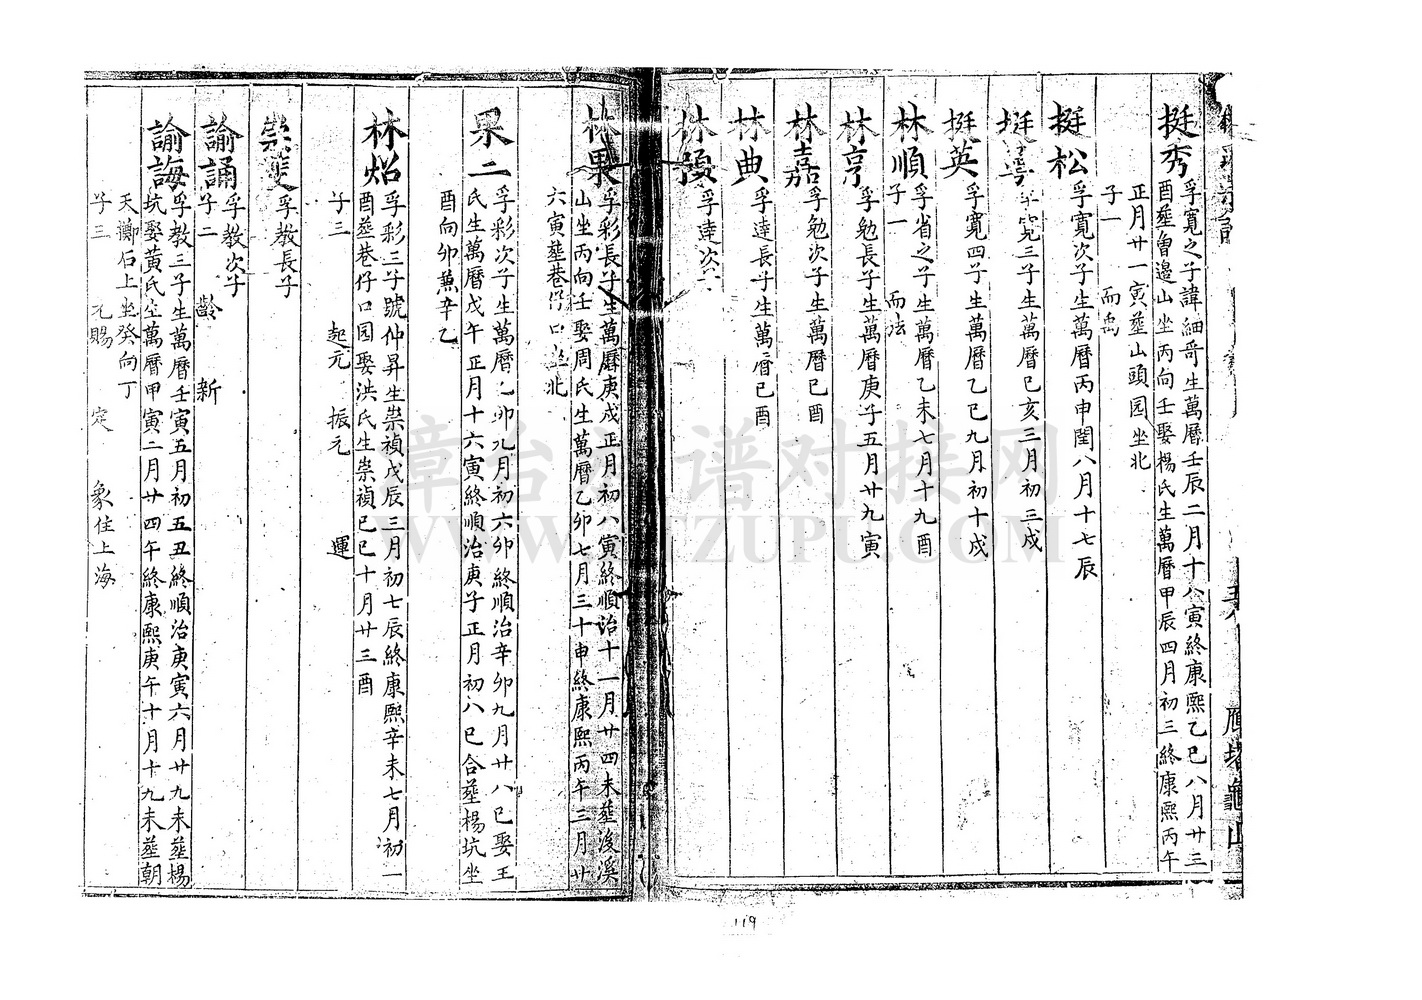 挺秀
孚寬之子諱細哥生萬曆壬辰二月十八寅終康熙乙巳八月廿三
酉葬曾邊山坐丙向壬娶楊氏生萬曆甲辰四月初三終康熙丙午
正月廿一寅葬山頭园坐北
子一 而禹
挺松
孚寬次子生萬曆丙申閏八月十七辰
孚寬三子生萬曆己亥三月初三戌
挺英
孚寬四子生萬曆乙巳九月初十戌
林順
孚省之子生萬曆乙未七月十九酉
子一 而法
林亨
孚勉長子生萬曆庚子五月廿九寅
林嘉
孚勉次子生萬曆己酉
林典
孚達長子生萬曆己酉
林
孚達次子
林果
孚彩長子生萬曆庚戌正月初八寅終順治十一月廿四未葬後溪
山坐丙向壬娶周氏生萬曆乙卯七月三十申終康熙丙午三月廿
六寅葬巷仔口坐北
果二
孚彩次子生萬曆乙卯九月初六卯終順治辛卯九月廿八巳娶王
氏生萬曆戊午正月十六寅終順治庚子正月初八巳合葬楊坑坐
酉向卯兼辛乙
林炤
孚彩三子號仲昇生崇禎戊辰三月初七辰終康熙辛未七月初一
酉葬巷仔口园娶洪氏生崇禎己巳十月廿三酉
子三 起元 振元 運
崇
孚教長子
諭誦
孚教次子
子二 齡 新
諭誨
孚教三子生萬曆壬寅五月初五丑終順治庚寅六月廿九未葬楊
坑娶黃氏生萬曆甲寅二月廿四午終康熙庚午十月十九未葬朝
天獅石上坐癸向丁
子三 元賜 定 象住上海
雁塔龜山
119
章台族谱对接网
WWW.ZTZUPU.COM